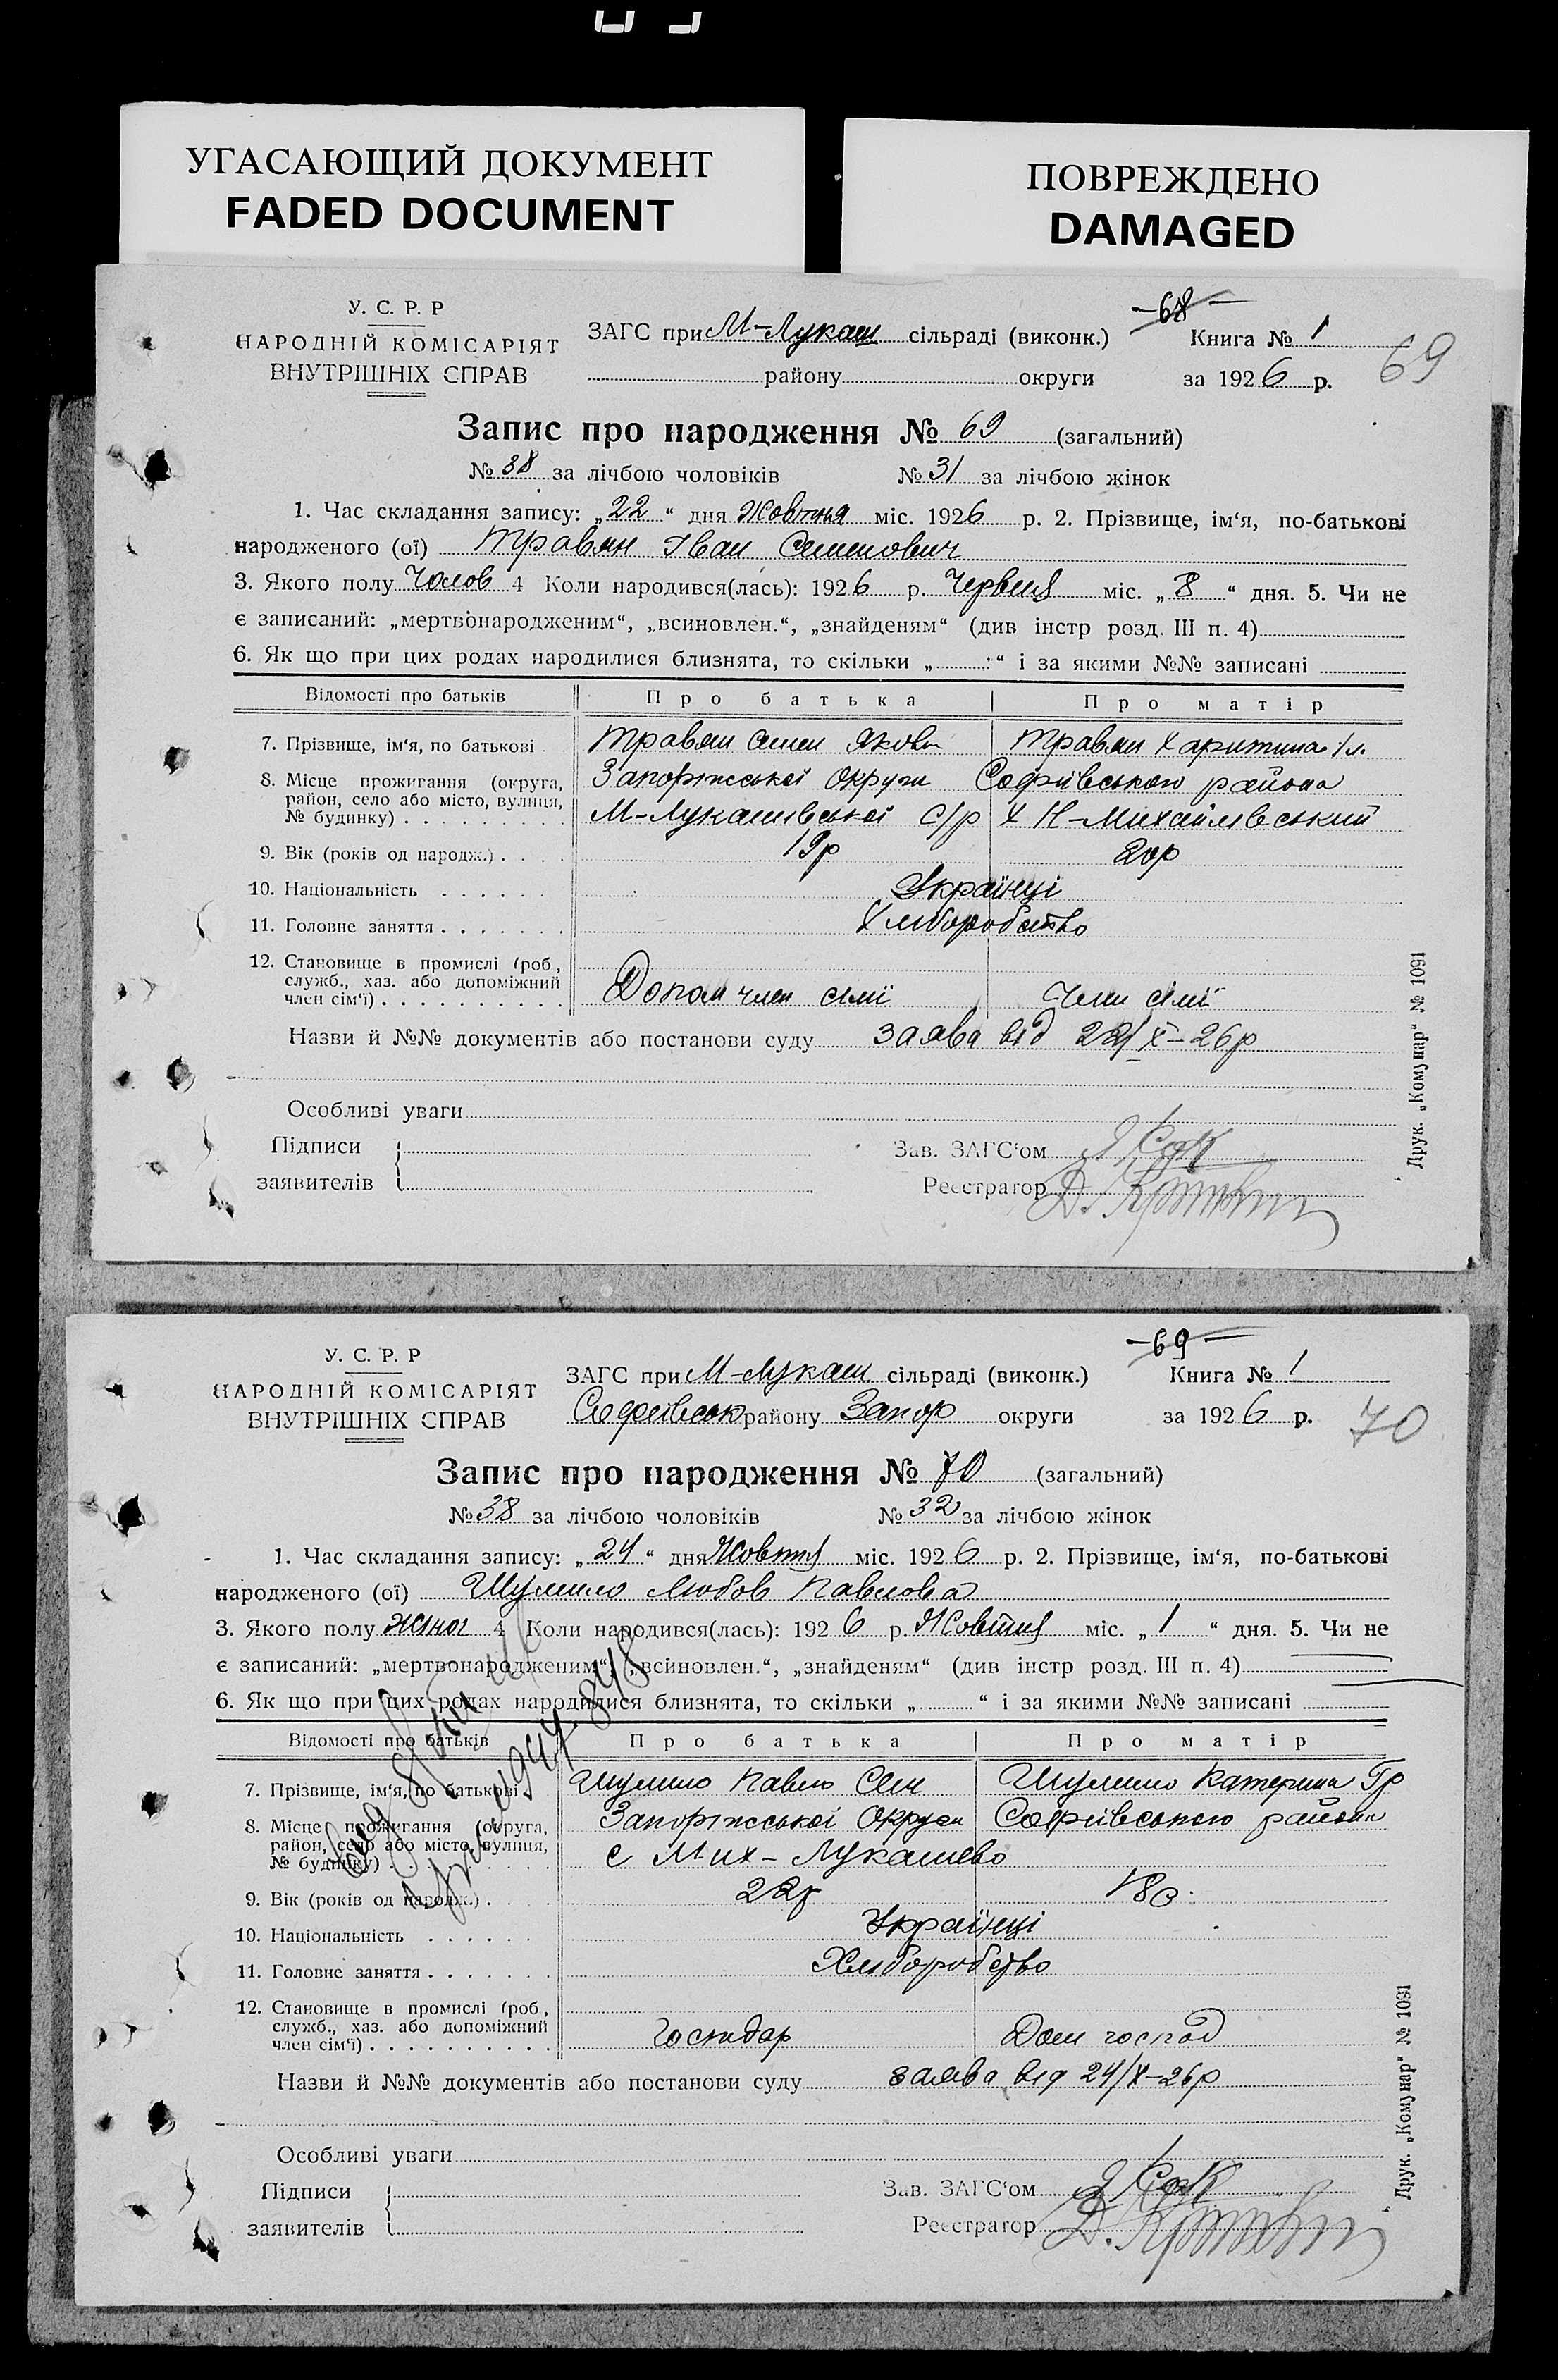 УГАСАЮЩИЙ ДОКУМЕНТ
FADED DOCUMENT
ПОВРЕЖДЕНО
DAMAGED
У. С. Р. Р
НАРОДНІЙ КОМІСАРІЯТ
ВНУТРІШНІХ СПРАВ
ЗАГС при М-Лукаш сільраді (виконк.)
району округи
68
Книга № 1
за 1926 р.
69
Запис про народження № 69 (загальний)
№ 38 за лічбою чоловіків № 31 за лічбою жінок
1. Час складання запису: „22“ дня Жовтня міс. 1926 р. 2. Прізвище, ім‘я, по-батькові
народженого (ої) Травян Іван Семенович
3. Якого полу Чолов 4 Коли народився(лась): 1926 р. Червня міс. „8“ дня. 5. Чи не
є записаний: „мертвонародженим“, „всиновлен.“, „знайденям“ (див інстр розд. III п. 4)
6. Як що при цих родах народилися близнята, то скільки „ “ і за якими №№ записані
Відомості про батьків Про батька Про матір
7. Прізвище, ім‘я, по батькові Травян Семен Яковл Травян Харитина
8. Місце прожигання (округа, район, село або місто, вулиця, № будинку) Запоріжської Округи Софіївського района
М-Лукашівської С/р Х Н-Михайлівський
9. Вік (років од народж.) 19р 20р
10. Національність Українці
11. Головне заняття Хліборобство
12. Становище в промислі (роб, служб., хаз. або допоміжний член сім‘ї) Допом член сімї Член сімї
Назви й №№ документів або постанови суду заява від 22/X-26р
Особливі уваги
Підписи
заявителів
Зав. ЗАГС‘ом
Реєстратор
Друк. „Комунар“ № 1091
У. С. Р. Р
НАРОДНІЙ КОМІСАРІЯТ
ВНУТРІШНІХ СПРАВ
ЗАГС при М-Лукаш сільраді (виконк.)
Софіївськ району Запор округи
69
Книга № 1
за 1926 р.
70
Запис про народження № 70 (загальний)
№ 38 за лічбою чоловіків № 32 за лічбою жінок
1. Час складання запису: „24“ дня Жовтня міс. 1926 р. 2. Прізвище, ім‘я, по-батькові
народженого (ої) Шумило Любов Павлова
3. Якого полу жіноч 4 Коли народився(лась): 1926 р. Жовтня міс. „1“ дня. 5. Чи не
є записаний: „мертвонародженим“, „всиновлен.“, „знайденям“ (див інстр розд. III п. 4)
6. Як що при цих родах народилися близнята, то скільки „ “ і за якими №№ записані
Відомості про батьків Про батька Про матір
7. Прізвище, ім‘я, по батькові Шумило Павло Сем Шумило Катерина Гр
8. Місце прожигання (округа, район, село або місто, вулиця, № будинку) Запоріжської Округи Софіївського района
с Мих-Лукашево
9. Вік (років од народж.) 22р
10. Національність Українці
11. Головне заняття Хліборобство
12. Становище в промислі (роб, служб., хаз. або допоміжний член сім‘ї) Господар Дом господ
Назви й №№ документів або постанови суду заява від 24/X-26р
Особливі уваги
Підписи
заявителів
Зав. ЗАГС‘ом
Реєстратор
Друк. „Комунар“ № 1091